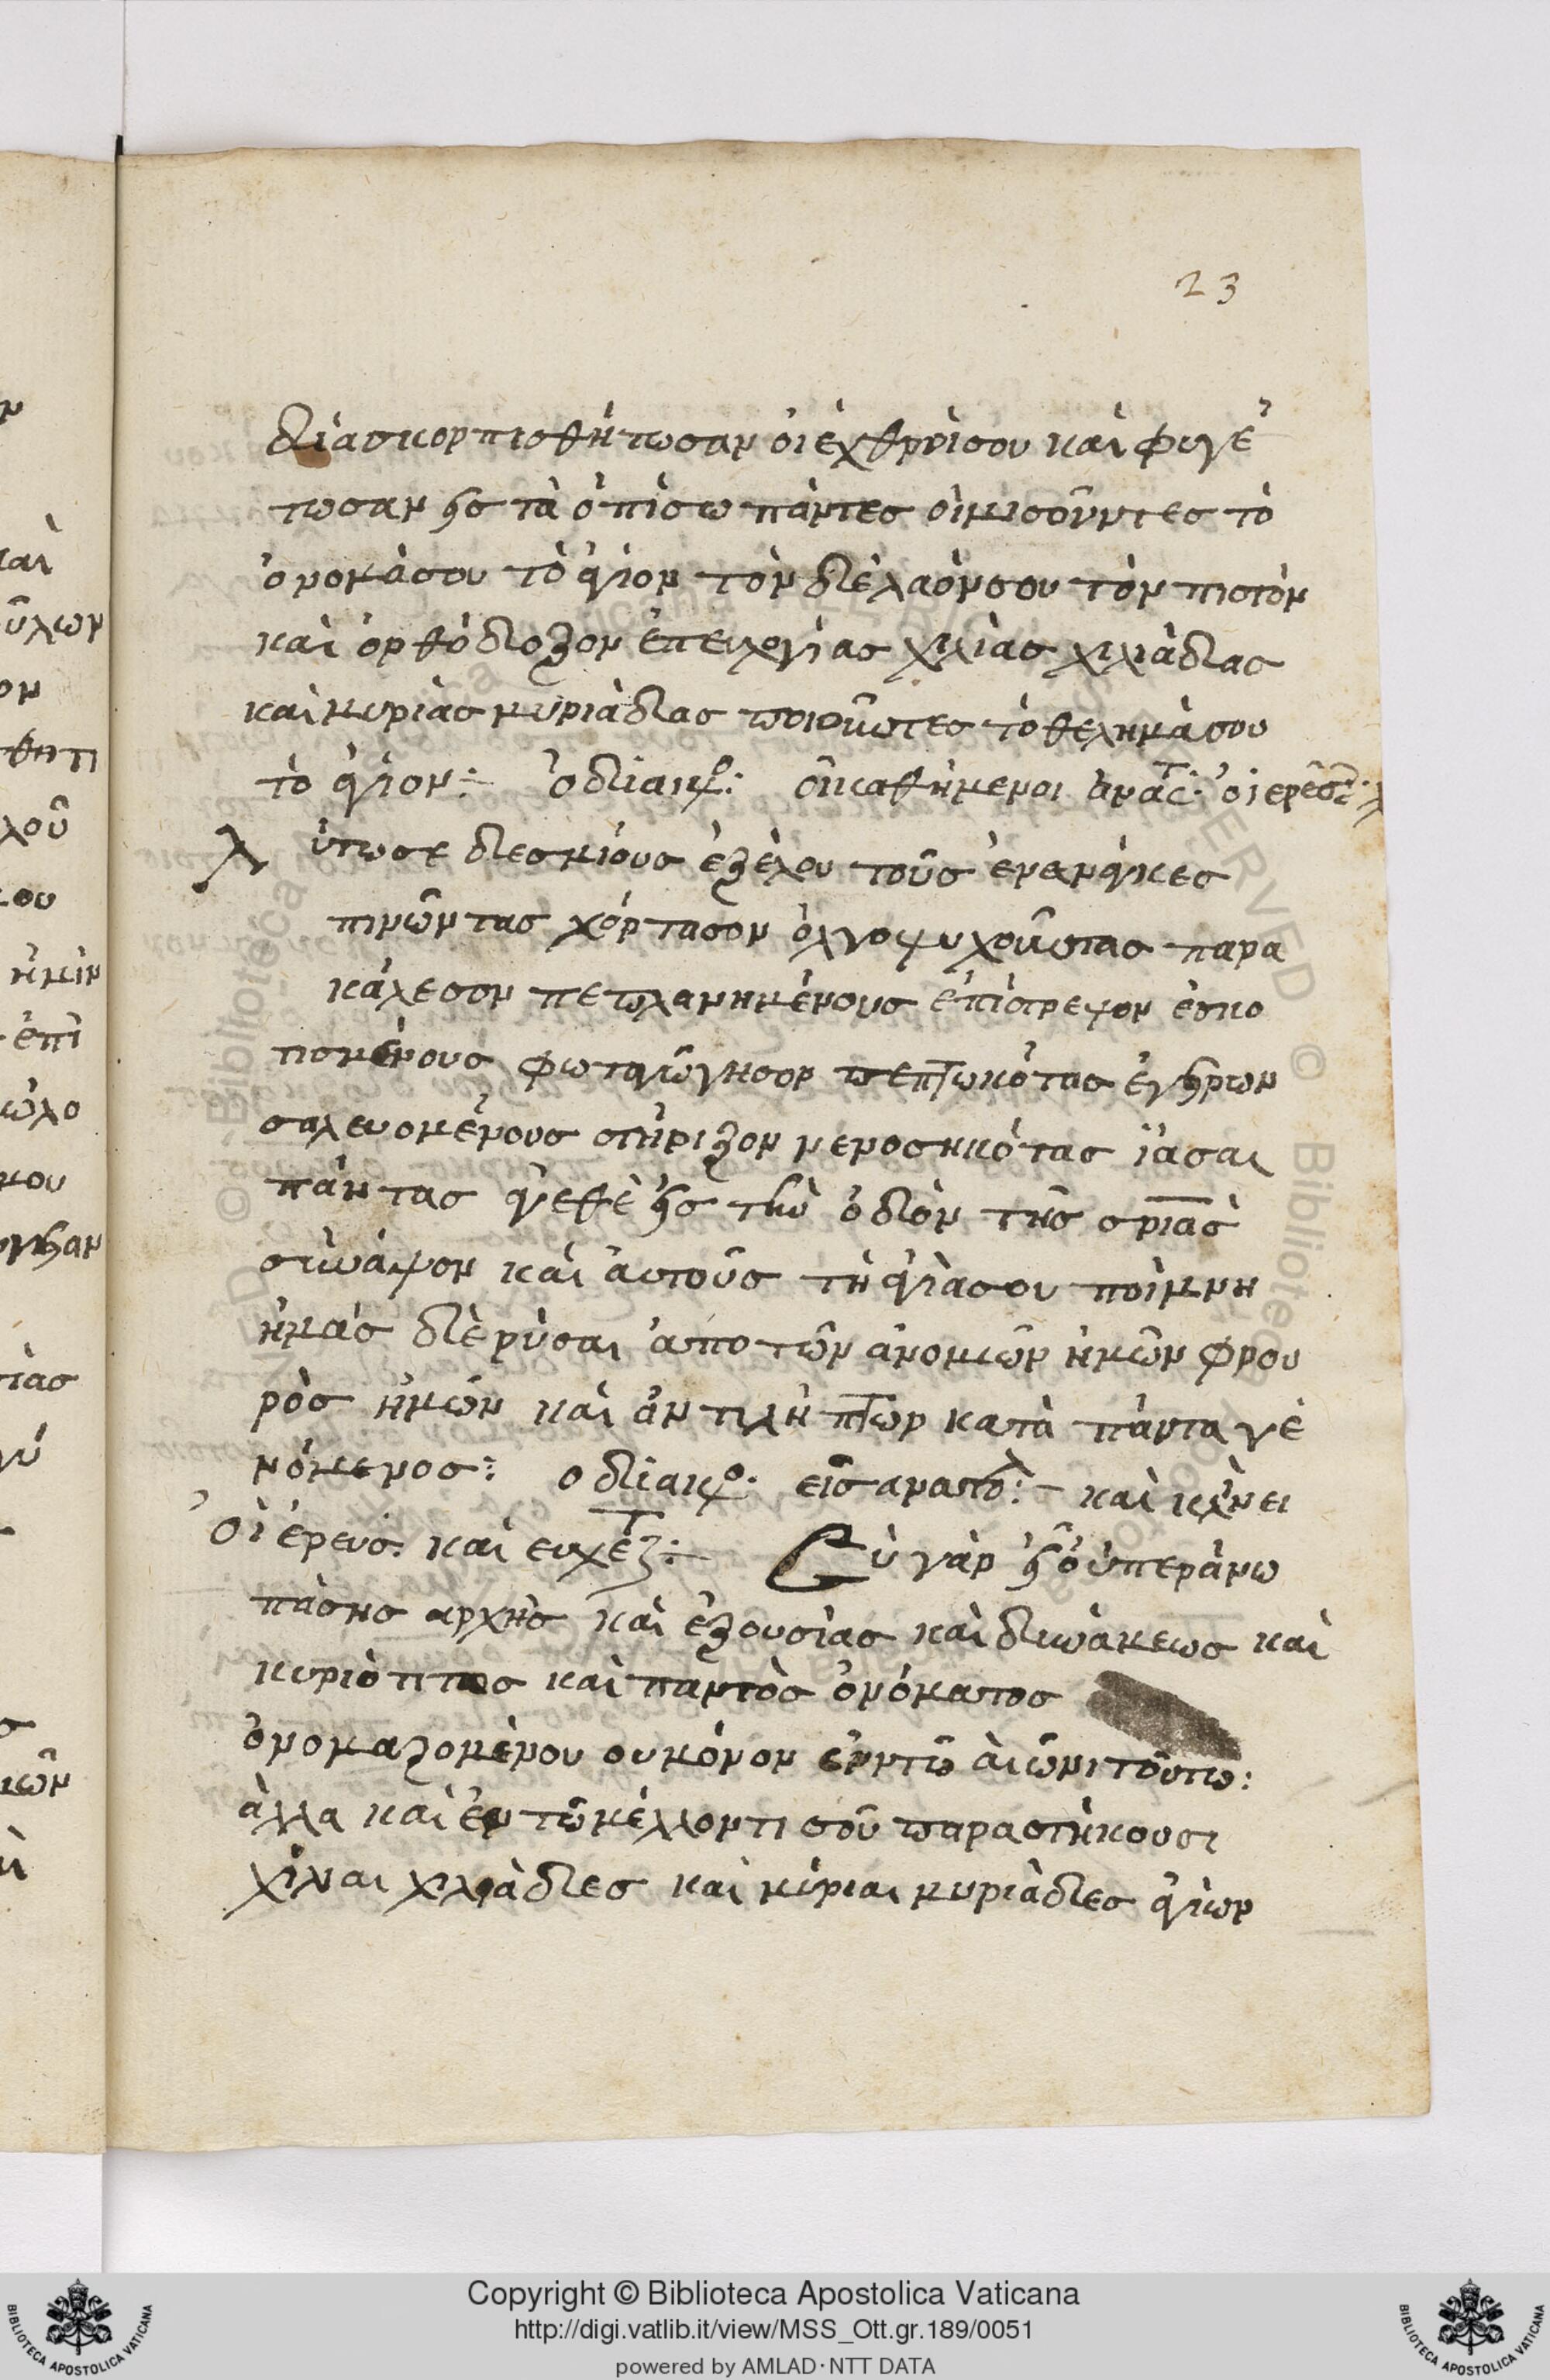 23
διασκορπισθήτωσαν οἱ ἐχθροίσου καὶ φυγέ
τωσαν εἰς τὰ ὀπίσω πάντες οἱ μισοῦντες τὸ
ὄνομάσου τὸ ἅγιον τὸν δὲ λαόνσου τὸν πιστὸν
καὶ ὀρθόδοξον ἐπευλογίας χιλίας χιλιάδας
καὶ μυρίας μυριάδας ποιοῦντες τὸ θελημά σου
τὸ ἅγιον: ὁ διακο: οἱ καθήμενοι ἀνάστ: ὁ ἱερεὺς
λύτωσε δεσμίους ἐξέλου τοὺς ἐν ανάγκες
πινῶντας χόρτασον ὀλιγοψυχοῦντας παρα
κάλεσον πεπλανημένους ἐπίστρεψον ἐσκο
τισμένους φωταγώγησον πεπτωκότας ἔγειρων
σαλευομένους στήριξον νενοσηκότας ἴασαι
πάντας ἄγεθὲ εἰς τὴν ὁδὸν τῆς σριας
σύναψον καὶ αὐτοὺς τῇ ἁγίασου ποίμνη
ἡμᾶς δὲ ρύσαι ἀπο τῶν ἀνομιῶν ἡμῶν φρου
ρὸς ἡμῶν καὶ ἀντιλήπτωρ κατὰ πάντα γε
νόμενος: ο διακο: εἰς ανατο: καὶ κλίνει
ὁ ἱερεὺς. και ευχετ: Σὺ γὰρ εἶ ὁ ὑπεράνω
πάσης αρχῆς καὶ ἐξουσίας καὶ δυνάμεως καὶ
κυριότητος καὶ παντὸς ὀνόματος
ὀνομαζομένου ου μόνον ἐν τῶ αἰῶνι τούτω:
ἀλλα καὶ ἐν τῶ μέλλοντι σοῦ παραστήκουσι
χίλιαι χιλιάδες καὶ μύριαι μυριάδες ἁγίων
Copyright © Biblioteca Apostolica Vaticana
http://digi.vatlib.it/view/MSS_Ott.gr.189/0051
powered by AMLAD·NTT DATA